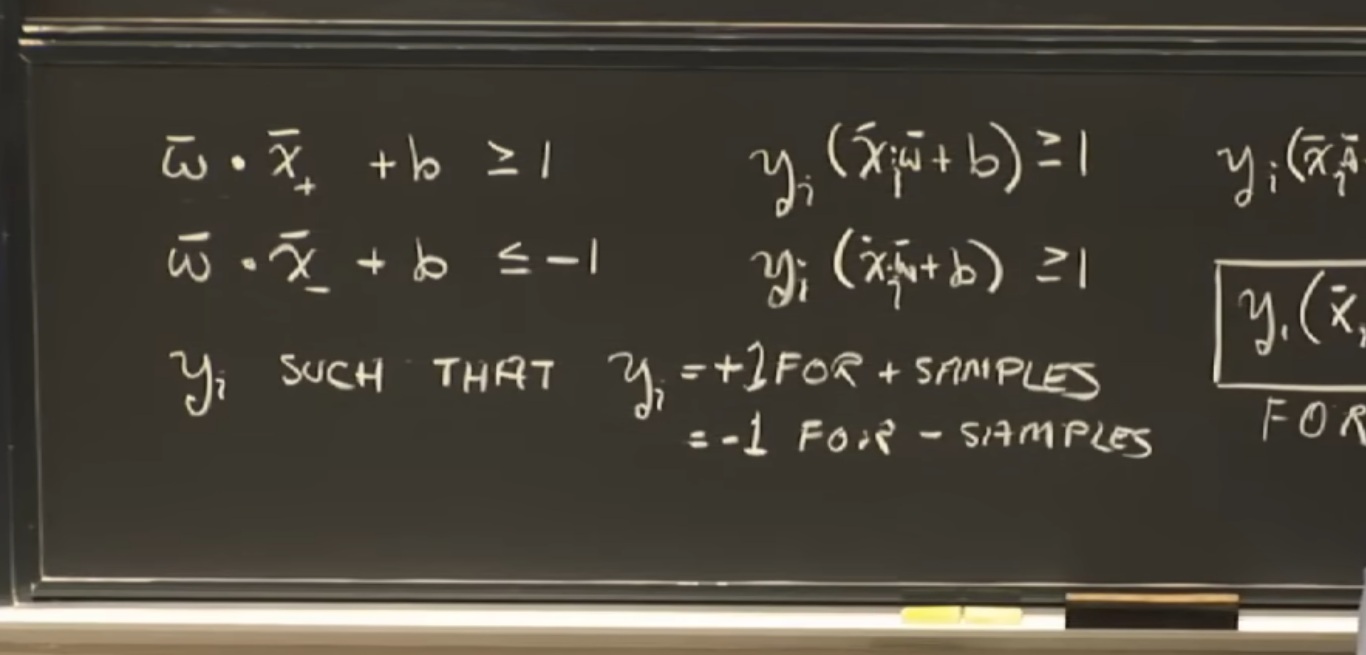 w̄ · x̄₊ + b ≥ 1
w̄ · x̄₋ + b ≤ -1
yᵢ SUCH THAT yᵢ = +1 FOR + SAMPLES
= -1 FOR - SAMPLES
yᵢ (x̄ᵢ·w̄ + b) ≥ 1
yᵢ (x̄ᵢ·w̄ + b) ≥ 1
yᵢ (x̄ᵢ
yᵢ (x̄ᵢ
FOR